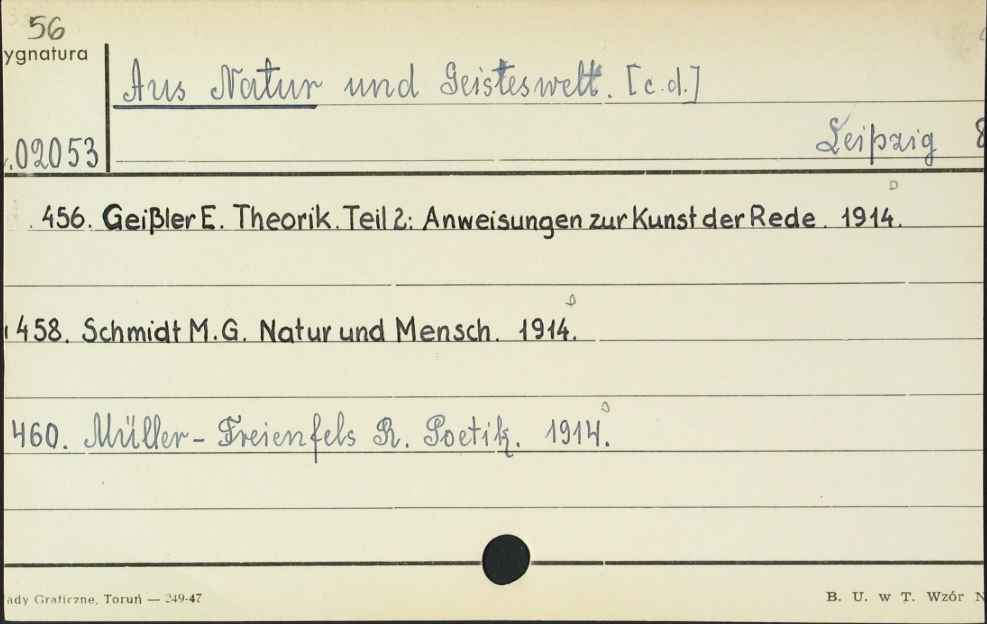 56
ygnatura
Aus Natur und Geisteswelt. [c.d.]
.02053
Leipzig 8
456. Geißler E. Theorik. Teil 2: Anweisungen zur Kunst der Rede. 1914.
458. Schmidt M.G. Natur und Mensch. 1914.
460. Müller-Freienfels R. Poetik. 1914.
ady Graficzne, Toruń — 249-47
B. U. w T. Wzór N